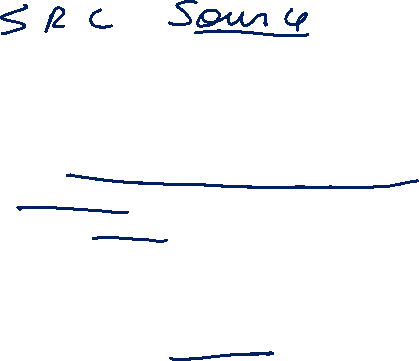 SRC Source